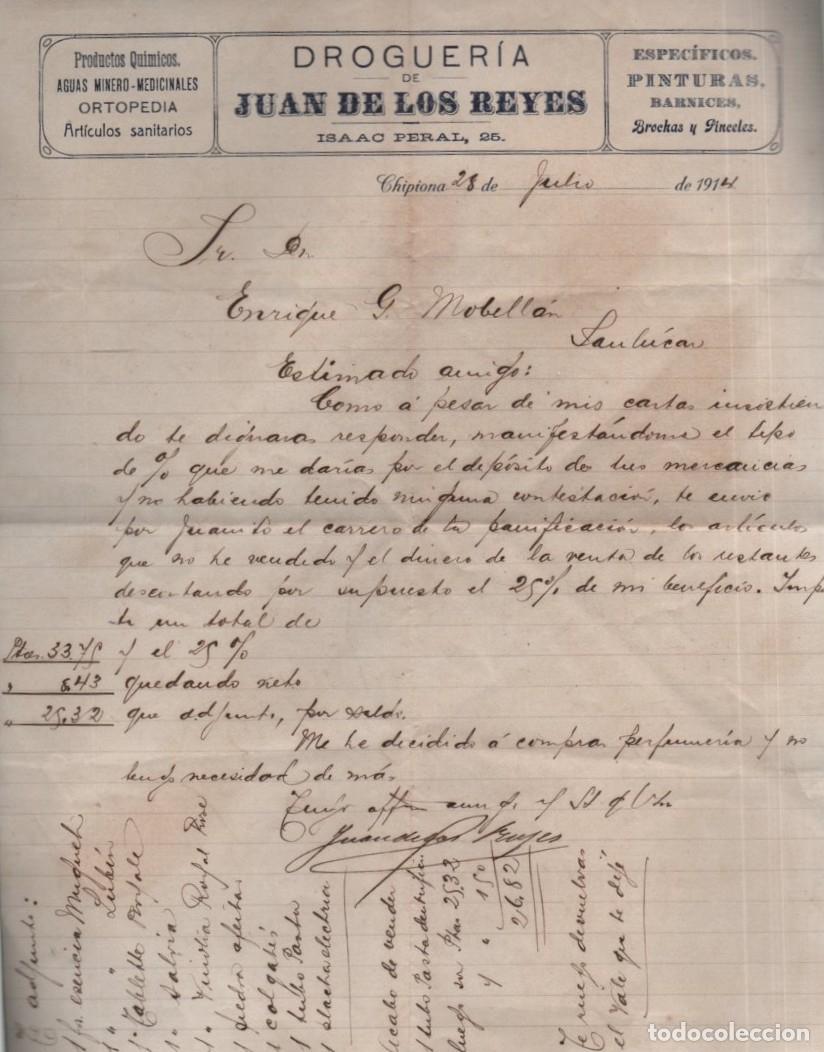 Productos Quimicos.
AGUAS MINERO-MEDICINALES
ORTOPEDIA
Artículos sanitarios
DROGUERÍA
DE
JUAN DE LOS REYES
ISAAC PERAL, 25.
ESPECÍFICOS.
PINTURAS,
BARNICES,
Brochas y Pinceles.
Chipiona 28 de Julio de 1914
Sr. Dn.
Enrique G. Mobellán
Sanlúcar
Estimado amigo:
Como á pesar de mis cartas insistien
do te dignaras responder, manifestándome el tipo
de % que me darías por el depósito de tus mercancias
y no habiendo tenido ninguna contestación, te envio
por Juanito el carrero de tu panificación, los artículos
que no he vendido y el dinero de la venta de los restantes
descontando por supuesto el 25% de mi beneficio. Impor
ta un total de
Ptas. 33.75 y el 25 %
" 8.43 quedando neto
" 25.32 que adjunto, por saldo.
Me he decidido á comprar perfumería y no
tengo necesidad de más.
Tuyo amigo y
Juan de los Reyes
adjunto:
1 fr. esencia Muguet
1 " " Lubín
1 " Tablette
1 " Salvia
1 "
1 piedra afeitar
1 colgatés
1 tubo Pasta
1 electrica
Acabo de vender
1 tubo Pasta dentrífica
luego son Ptas. 25,32
y " 1 50
26,82
Te ruego devuelvas
el Vale que te dejé
todocoleccion